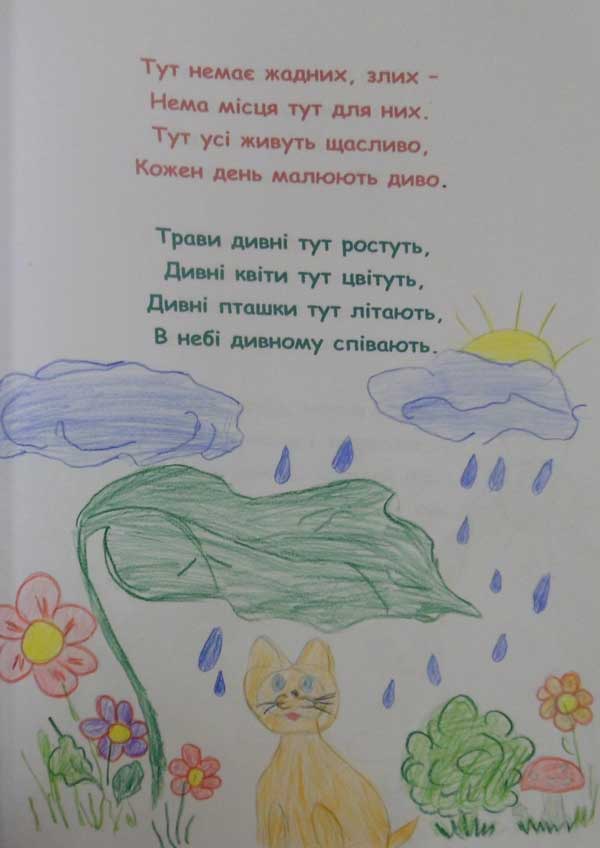 Тут немає жадних, злих –
Нема місця тут для них.
Тут усі живуть щасливо,
Кожен день малюють диво.
Трави дивні тут ростуть,
Дивні квіти тут цвітуть,
Дивні пташки тут літають,
В небі дивному співають.